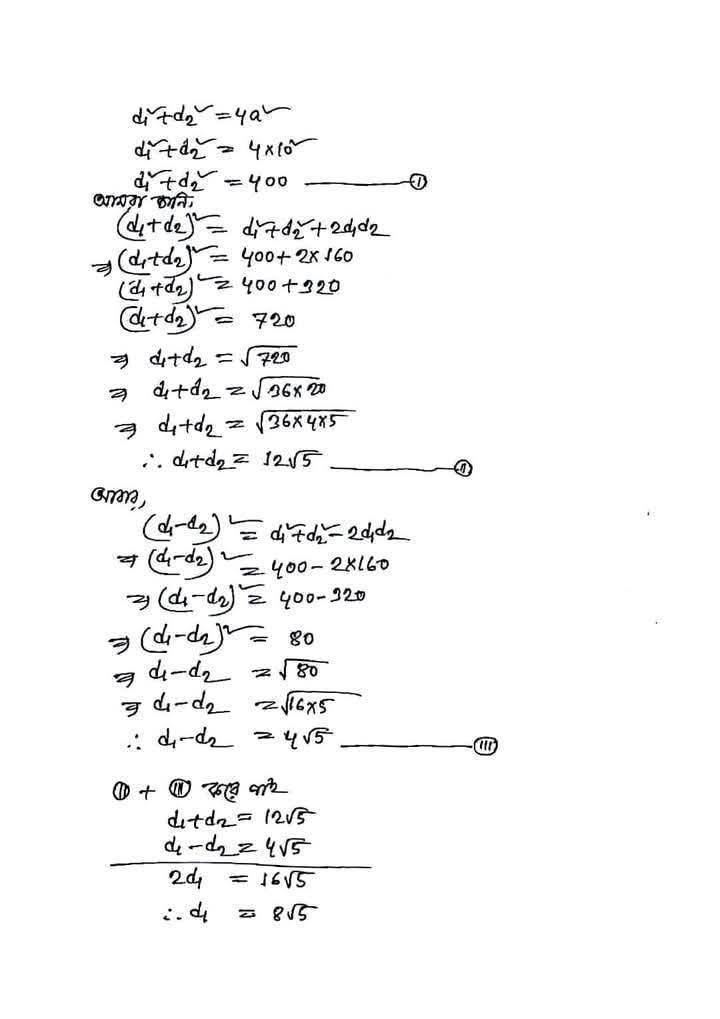 d₁²+d₂² = 4a²
d₁²+d₂² = 4×10²
d₁²+d₂² = 400 ——— (i)
আমরা জানি,
(d₁+d₂)² = d₁²+d₂²+2d₁d₂
⇒ (d₁+d₂)² = 400+2×160
(d₁+d₂)² = 400+320
(d₁+d₂)² = 720
⇒ d₁+d₂ = √720
⇒ d₁+d₂ = √36×20
⇒ d₁+d₂ = √36×4×5
∴ d₁+d₂ = 12√5 ——— (ii)
আবার,
(d₁-d₂)² = d₁²+d₂²-2d₁d₂
⇒ (d₁-d₂)² = 400-2×160
⇒ (d₁-d₂)² = 400-320
⇒ (d₁-d₂)² = 80
⇒ d₁-d₂ = √80
⇒ d₁-d₂ = √16×5
∴ d₁-d₂ = 4√5 ——— (iii)
(ii) + (iii) করে পাই
d₁+d₂ = 12√5
d₁-d₂ = 4√5
2d₁ = 16√5
∴ d₁ = 8√5